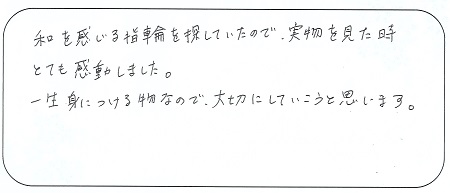 和を感じる指輪を探していたので、実物を見た時
とても感動しました。
一生身につける物なので、大切にしていこうと思います。